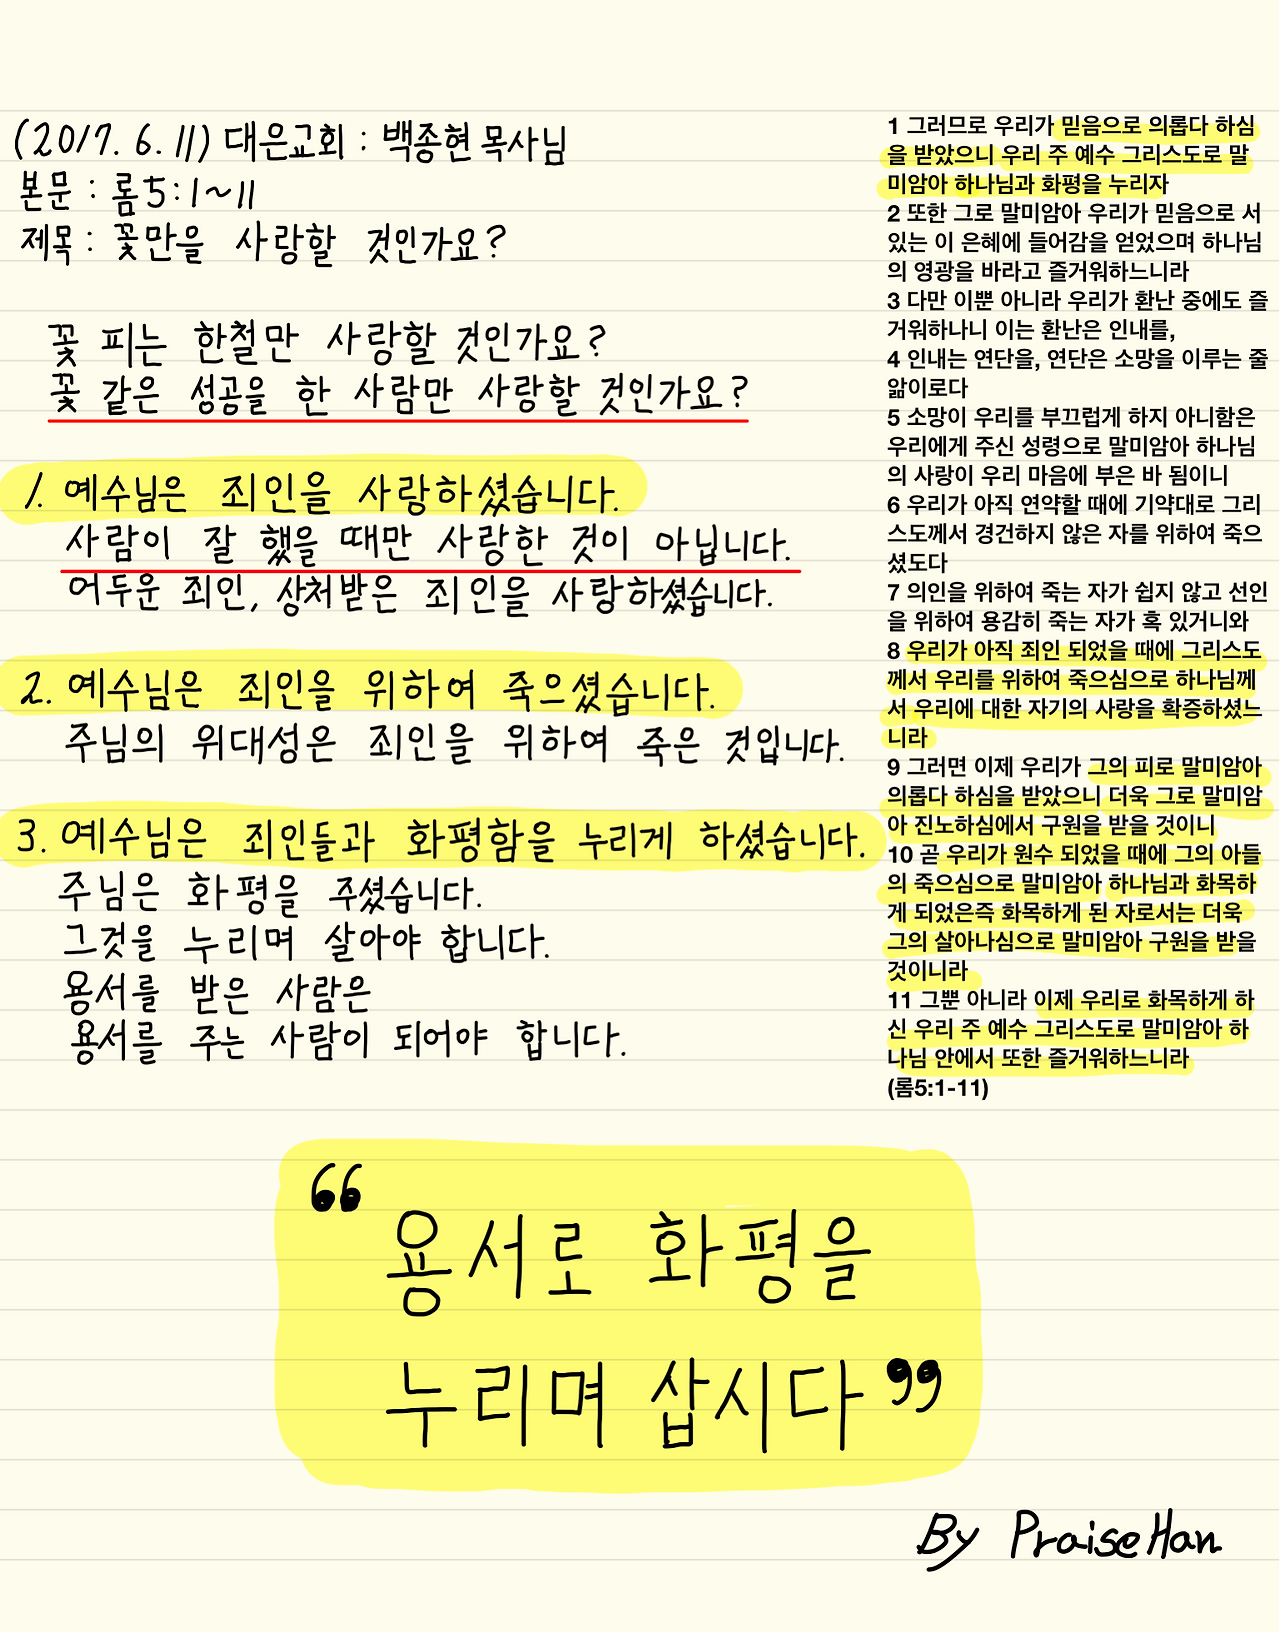 (2017. 6. 11) 대은교회 : 백종현 목사님
본문 : 롬5:1~11
제목 : 꽃만을 사랑할 것인가요?
꽃 피는 한철만 사랑할 것인가요?
꽃 같은 성공을 한 사람만 사랑할 것인가요?
1. 예수님은 죄인을 사랑하셨습니다.
사람이 잘 했을 때만 사랑한 것이 아닙니다.
어두운 죄인, 상처받은 죄인을 사랑하셨습니다.
2. 예수님은 죄인을 위하여 죽으셨습니다.
주님의 위대성은 죄인을 위하여 죽은 것입니다.
3. 예수님은 죄인들과 화평함을 누리게 하셨습니다.
주님은 화평을 주셨습니다.
그것을 누리며 살아야 합니다.
용서를 받은 사람은
용서를 주는 사람이 되어야 합니다.
1 그러므로 우리가 믿음으로 의롭다 하심
을 받았으니 우리 주 예수 그리스도로 말
미암아 하나님과 화평을 누리자
2 또한 그로 말미암아 우리가 믿음으로 서
있는 이 은혜에 들어감을 얻었으며 하나님
의 영광을 바라고 즐거워하느니라
3 다만 이뿐 아니라 우리가 환난 중에도 즐
거워하나니 이는 환난은 인내를,
4 인내는 연단을, 연단은 소망을 이루는 줄
앎이로다
5 소망이 우리를 부끄럽게 하지 아니함은
우리에게 주신 성령으로 말미암아 하나님
의 사랑이 우리 마음에 부은 바 됨이니
6 우리가 아직 연약할 때에 기약대로 그리
스도께서 경건하지 않은 자를 위하여 죽으
셨도다
7 의인을 위하여 죽는 자가 쉽지 않고 선인
을 위하여 용감히 죽는 자가 혹 있거니와
8 우리가 아직 죄인 되었을 때에 그리스도
께서 우리를 위하여 죽으심으로 하나님께
서 우리에 대한 자기의 사랑을 확증하셨느
니라
9 그러면 이제 우리가 그의 피로 말미암아
의롭다 하심을 받았으니 더욱 그로 말미암
아 진노하심에서 구원을 받을 것이니
10 곧 우리가 원수 되었을 때에 그의 아들
의 죽으심으로 말미암아 하나님과 화목하
게 되었은즉 화목하게 된 자로서는 더욱
그의 살아나심으로 말미암아 구원을 받을
것이니라
11 그뿐 아니라 이제 우리로 화목하게 하
신 우리 주 예수 그리스도로 말미암아 하
나님 안에서 또한 즐거워하느니라
(롬5:1-11)
“ 용서로 화평을
누리며 삽시다 ”
By PraiseHan